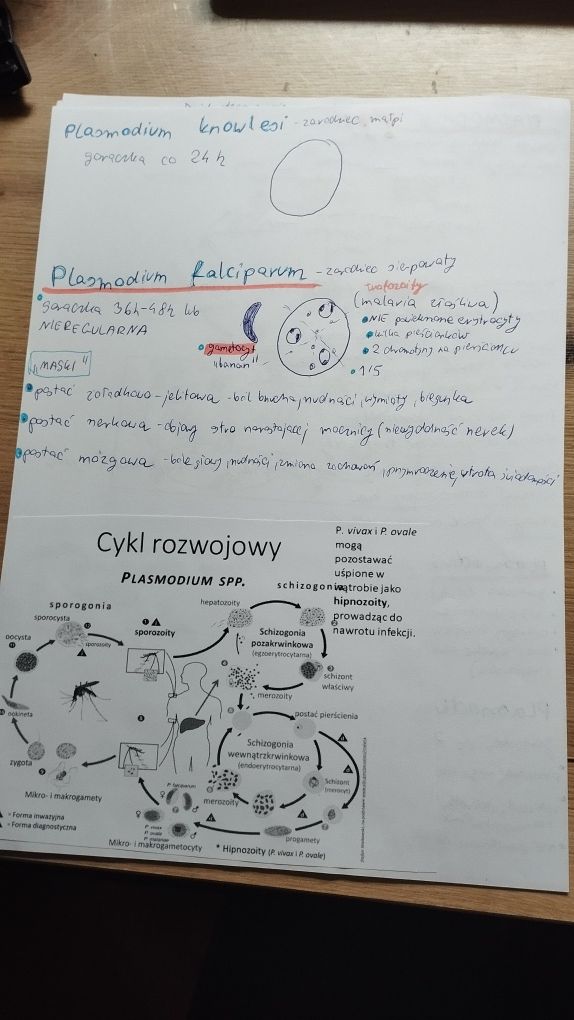 Plasmodium knowlesi - zarodziec małpi
gorączka co 24 h
Plasmodium falciparum - zarodziec sierpowaty
gorączka 36h-48h lub
NIEREGULARNA
gametocyt
"banan"
trofozoity
(malaria złośliwa)
NIE powiększone erytrocyty
kilka pierścionków
2 chromatyny na pierścionku
1/5
"MASKI"
postać żołądkowo-jelitowa - ból brzucha, nudności, wymioty, biegunka
postać nerkowa - objawy ostro narastającej mocznicy (niewydolność nerek)
postać mózgowa - bóle głowy, nudności, zmiana zachowań, utrata świadomości
Cykl rozwojowy
PLASMODIUM SPP.
P. vivax i P. ovale
mogą
pozostawać
uśpione w
wątrobie jako
hipnozoity,
prowadząc do
nawrotu infekcji.
schizogonia
sporogonia
sporocysta
sporozoity
oocysta
ookineta
zygota
Mikro- i makrogamety
sporozoity
hepatozoity
Schizogonia
pozakrwinkowa
(egzoerytrocytarna)
schizont
właściwy
merozoity
postać pierścienia
Schizogonia
wewnątrzkrwinkowa
(endoerytrocytarna)
Schizont
(merocyt)
merozoity
progamety
P. falciparum
P. vivax
P. ovale
P. malariae
Mikro- i makrogametocyty
= Forma inwazyjna
= Forma diagnostyczna
* Hipnozoity (P. vivax i P. ovale)